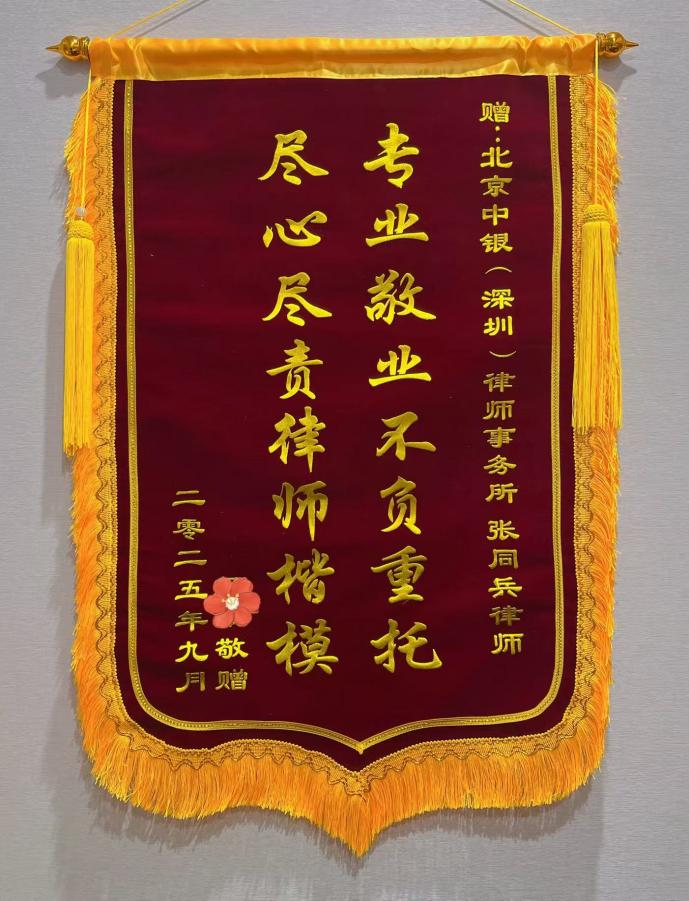 赠：北京中银（深圳）律师事务所 张同兵律师
专业敬业不负重托
尽心尽责律师楷模
敬赠
二零二五年九月